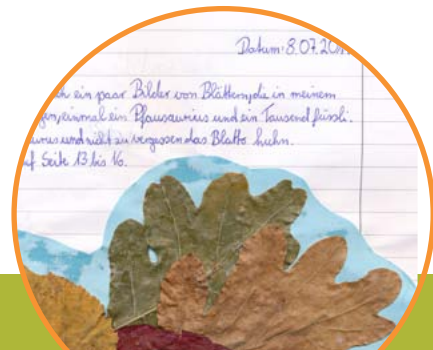 Datum: 8.07.20
ein paar Bilder von Blättern, die in meinem
einmal ein Pfausaurius und ein Tausendfüssli.
und nicht zu vergessen das Blatto huhn.
Seite 13 bis 16.